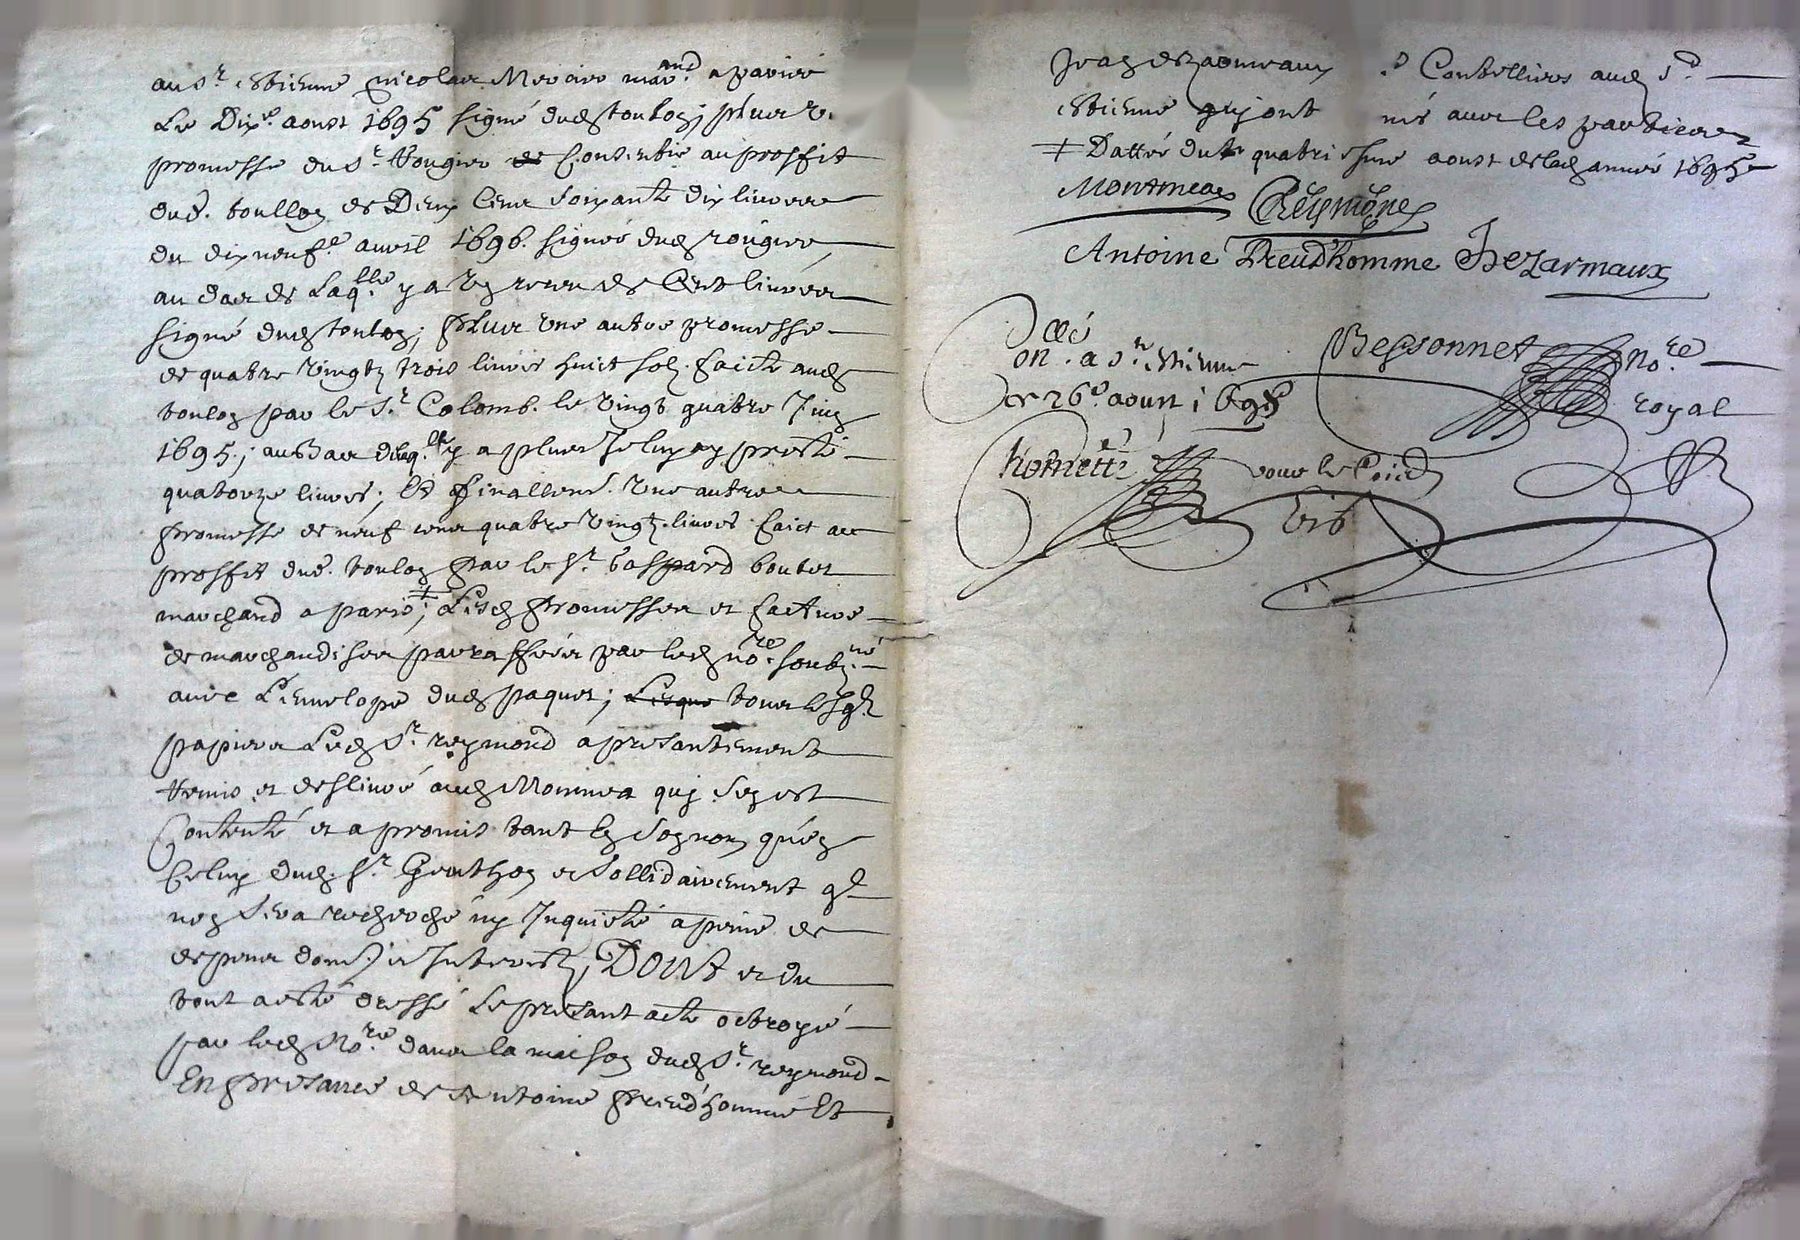 au sr. estienne nicolas Mercier marand. a paris
Le Dixe. aoust 1695 signé dud toulon; plus
promesse du sr. Rougier de Consentie au proffit
dud. toullon de Deux Cens soixante dix livres
du dix neufe. avril 1696. signée dud rougier,
au das de Laqlle. y a un receu de Cent livres
signé dud toulon; plus une autre promesse
de quatre vingtz trois livres huict solz. faicte aud
toulon par le sr. Colomb. le vingt quatre Juin
1695.; au bas delaqlle. y a plus Je luy ay presté
quatorze livres; Et finallemt. une autre
promesse de neuf cens quatre vingtz livres faict au
proffit dud. toulon par le sr. gaspard boutet
marchand a paris ǂ; Lesd promesses et facture
de marchandises parraffées par led nore. soubzné.
avec L'envelope dud paquet; Lesque tous lesqls
papiers Led sr. reymond a presantement
remis et deslivré aud Monmea quj s'en est
Contenté et a promis tant en son nom qu'en
Celuy dud. sr. Genthon et sollidairement ql
non sera recherché ny Inquieté a peine de
despens dom. et Interestz, Dont et du
tout a esté dressé Le presant acte octroyé
par led Nore. dans la maison dud sr. reymond
En presance de Antoine preud'homme Et
Jean dezarmeaux Cordelliers aud st.
estienne quj ont né avec les parties
ǂ Dattée du quatriesme aoust de lad année 1695
Montmean Reymond
Antoine Preud'homme J Dezarmaux
Collé
on. a st. estienne
ce 26e. aoust 1698
Bessonnet nore.
royal